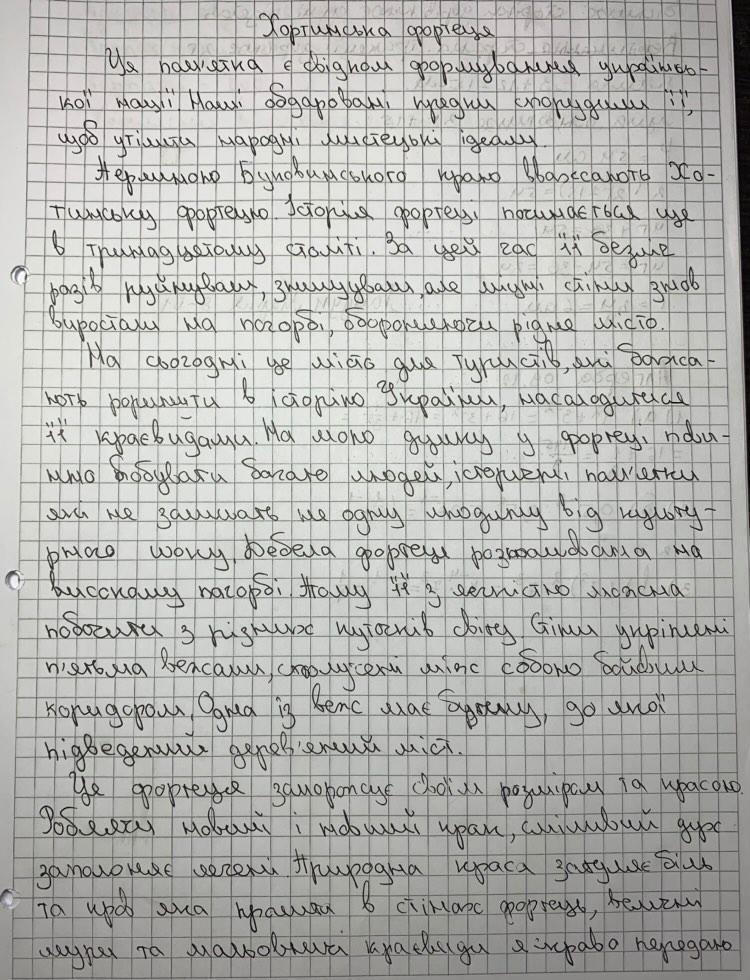 Хортинська фортеця
Ця пам'ятка є свідком формування українсь-
кої нації. Наші обдаровані предки спорудили її,
щоб утілити народні мистецькі ідеали.
Перлиною Буковинського краю вважають Хо-
тинську фортецю. Історія фортеці починається ще
в тринадцятому столітті. За цей час її безліч
разів руйнували, знищували, але міцні стіни знов
виростали на пагорбі, обороняючи рідне місто.
На сьогодні це місце для туристів, які бажа-
ють поринути в історію України, насолодитися
її краєвидами. На мою думку у фортеці пови-
нно побувати багато людей, історичні пам'ятки
які не залишать не одну людину від культу-
рного шоку. Дебела фортеця розташована на
високому пагорбі. Тому її з легкістю можна
побачити з різних куточків світу. Стіни укріплені
п'ятьма вежами, сполучені між собою бойовим
коридором. Одна із веж має браму, до якої
підведений дерев'яний міст.
Ця фортеця заворожує своїм розміром та красою.
Роблячи новий і новий крок, сміливий дух
заполоняє легені. Природна краса затуляє біль
та кров яка пролита в стінах фортеці, величні
мури та мальовничі краєвиди яскраво передаю